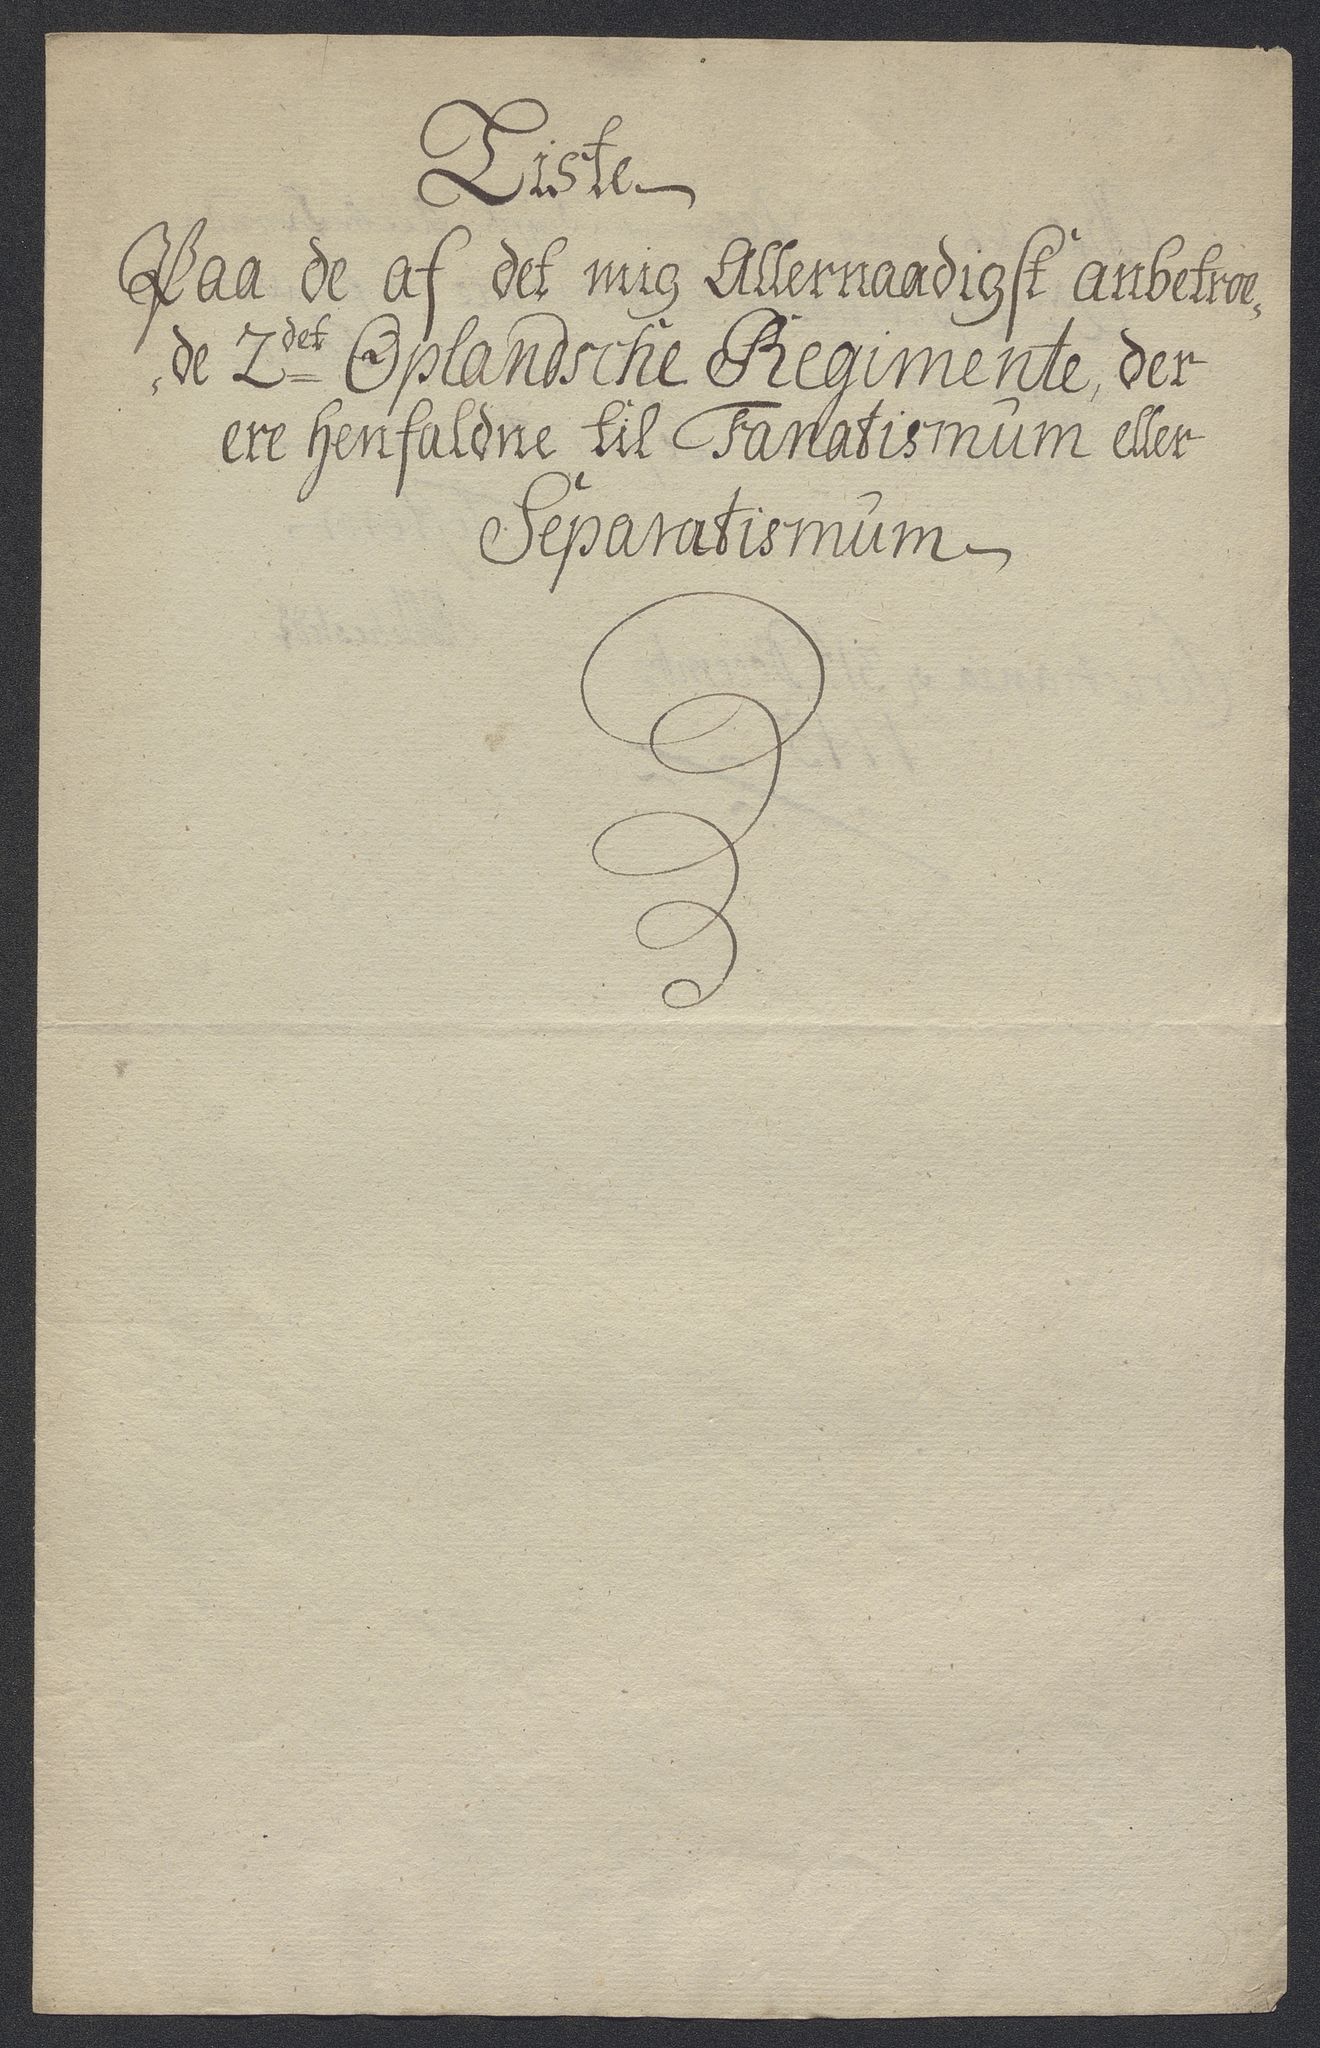 Liste
Paa de af det mig Allernaadigst anbetroe„
„de 2det Oplandsche Regimente, der
ere henfaldne til Fanatismum eller
Separatismum